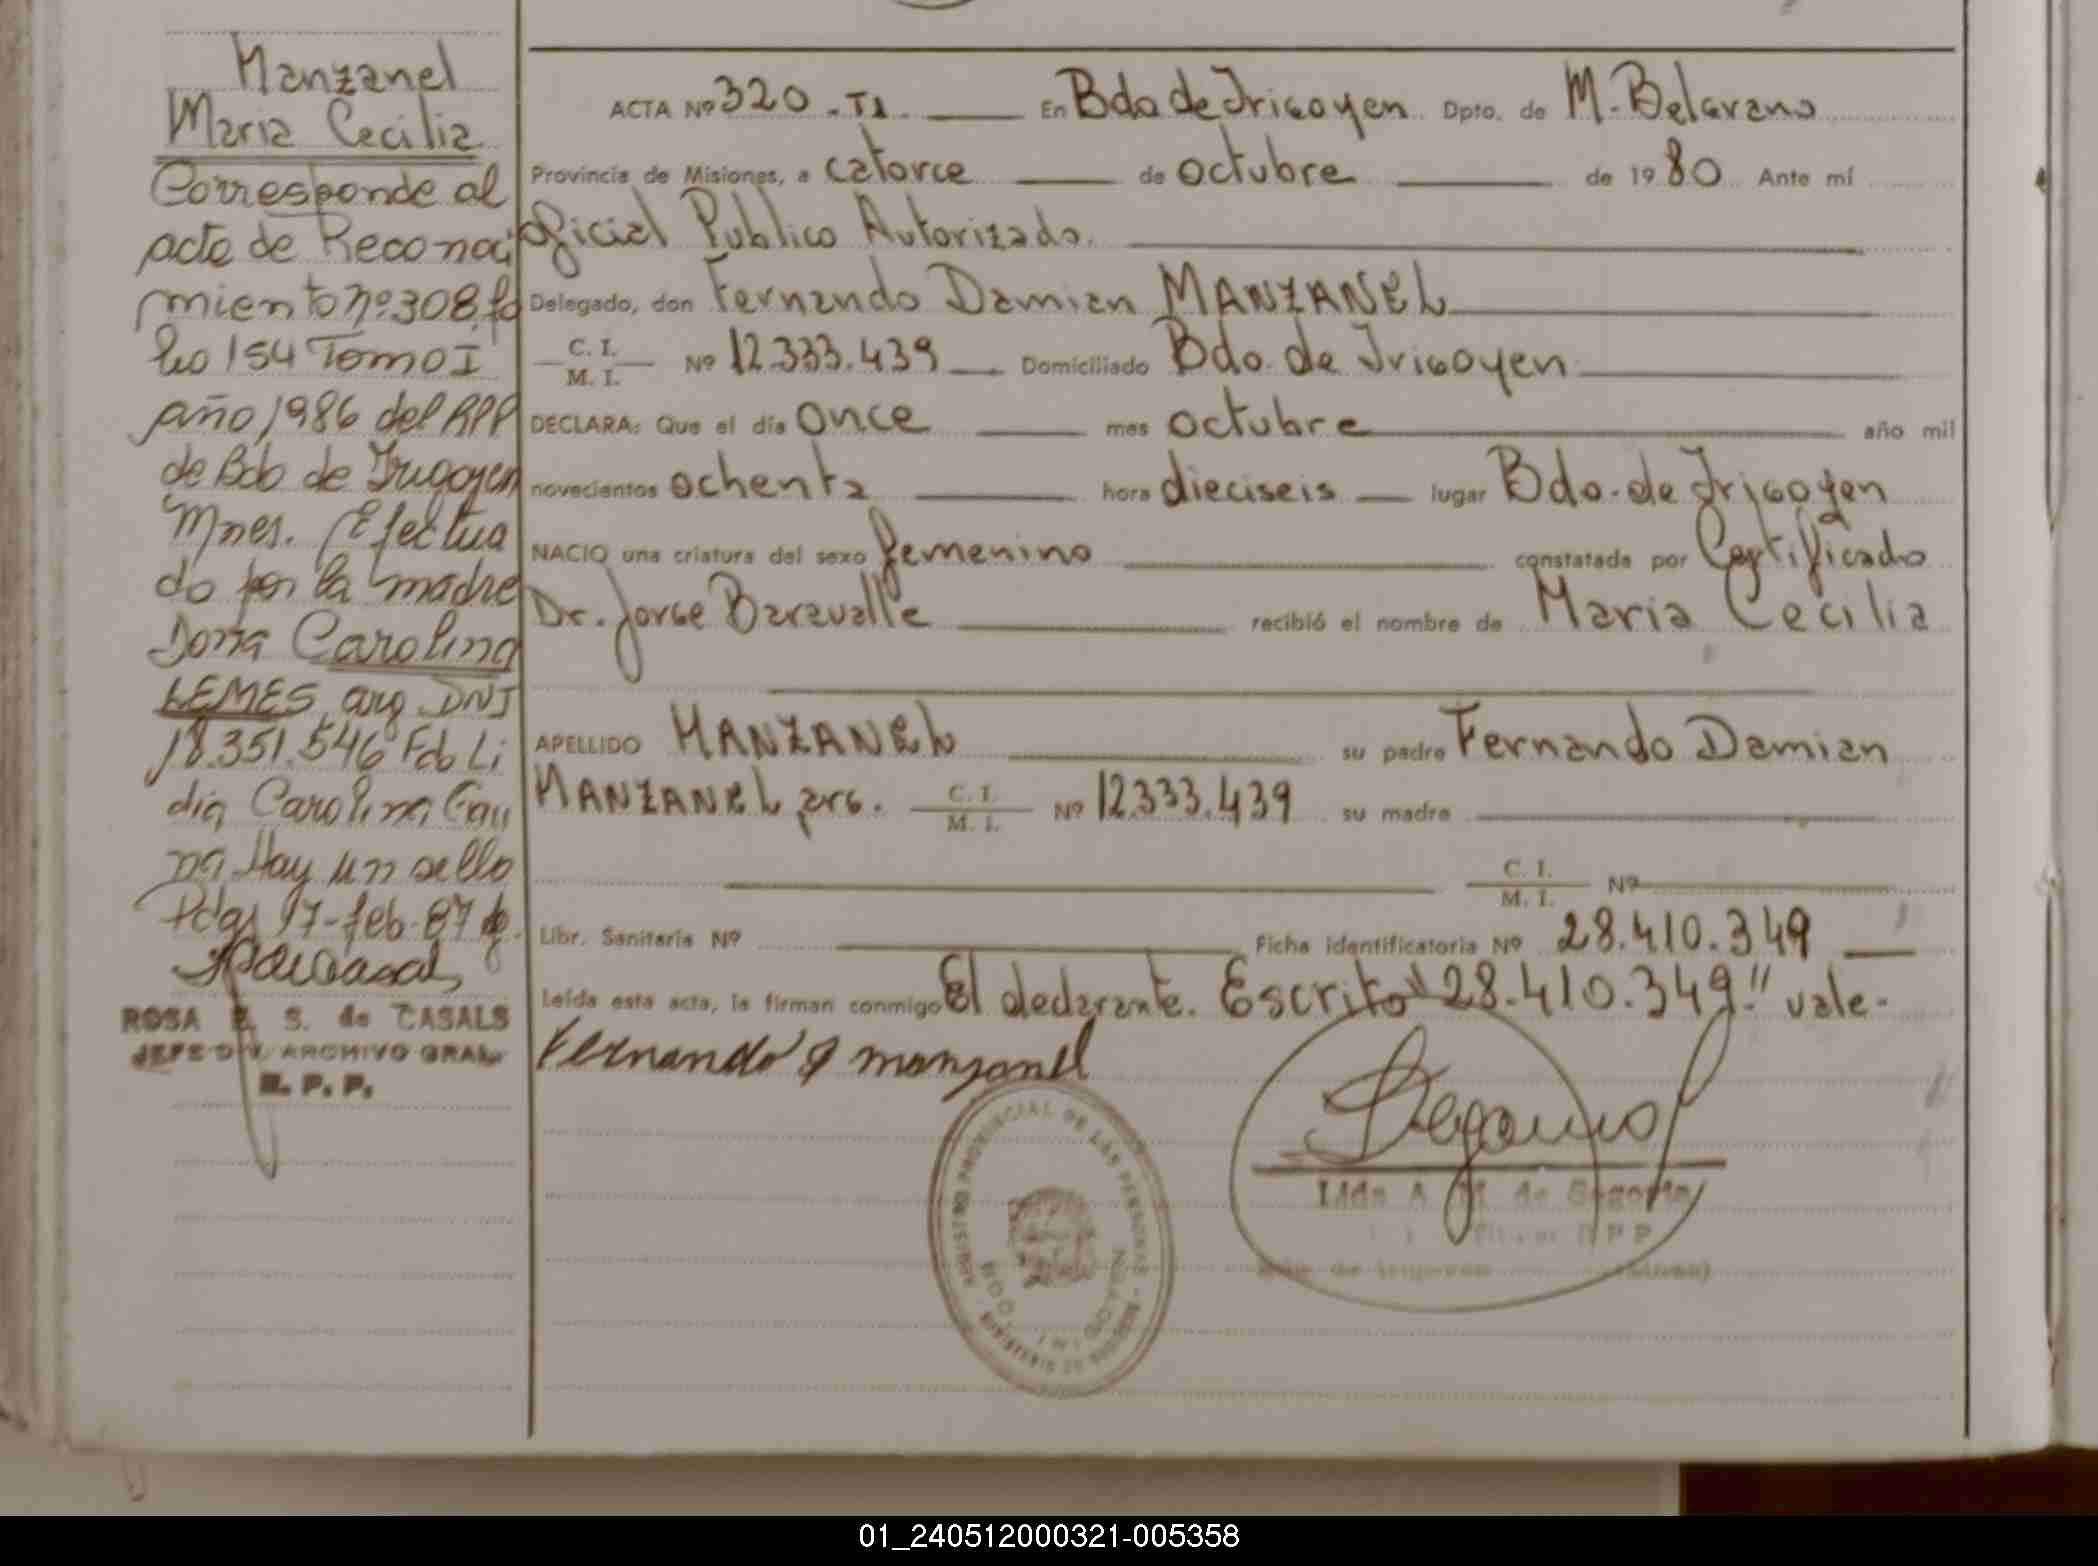 Manzanel
Maria Cecilia
Corresponde al
acta de Reconoci
miento nº 308, fo
lio 154 Tomo I
año 1986 del RPP
de Bdo de Irigoyen
Mnes. Efectua
do por la madre
Doña Carolina
LEMES arg. DNI
18.351.546 Fdo Li
dia Carolina Gau
na Hay un sello
Pdas 17-feb-87
ROSA E. S. de CASALS
JEFE DIV. ARCHIVO GRAL.
R. P. P.
ACTA Nº 320 - T1. En Bdo de Irigoyen Dpto. de M. Belgrano
Provincia de Misiones, a catorce de octubre de 1980 Ante mí
Oficial Publico Autorizado.
Delegado, don Fernando Damian MANZANEL
C. I.
M. I. Nº 12.333.439 Domiciliado Bdo. de Irigoyen
DECLARA: Que el día once mes octubre año mil
novecientos ochenta hora dieciseis lugar Bdo. de Irigoyen
NACIO una criatura del sexo femenino constatada por Certificado
Dr. Jorge Baravalle recibió el nombre de Maria Cecilia
APELLIDO MANZANEL su padre Fernando Damian
MANZANEL arg. C. I.
M. I. Nº 12.333.439 su madre
C. I.
M. I. Nº
Libr. Sanitaria Nº Ficha identificatoria Nº 28.410.349
Leída esta acta, la firman conmigo El declarante. Escrito "28.410.349" vale-
Fernando D manzanel
REGISTRO PROVINCIAL DE LAS PERSONAS
Lida A. M. de Segovia
01_240512000321-005358